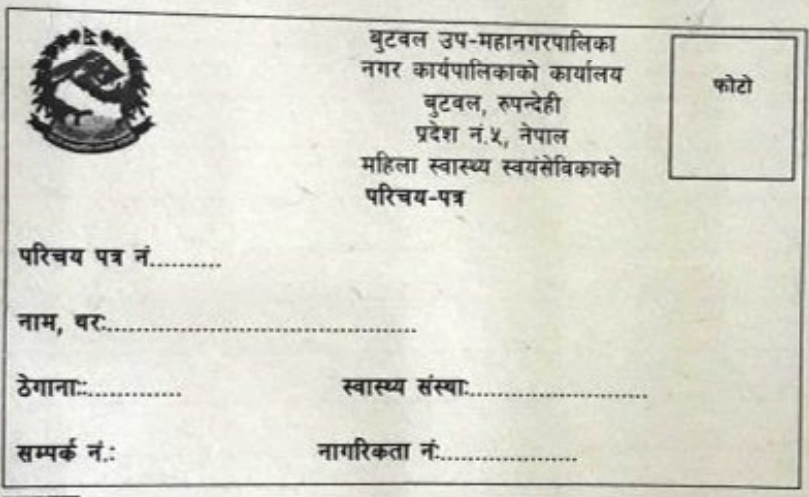 बुटवल उप-महानगरपालिका
नगर कार्यपालिकाको कार्यालय
बुटवल, रुपन्देही
प्रदेश नं.५, नेपाल
महिला स्वास्थ्य स्वयंसेविकाको
परिचय-पत्र
फोटो
परिचय पत्र नं..........
नाम, थरः............................................
ठेगानाः:............. स्वास्थ्य संस्थाः.........................
सम्पर्क नं.: नागरिकता नंः...................